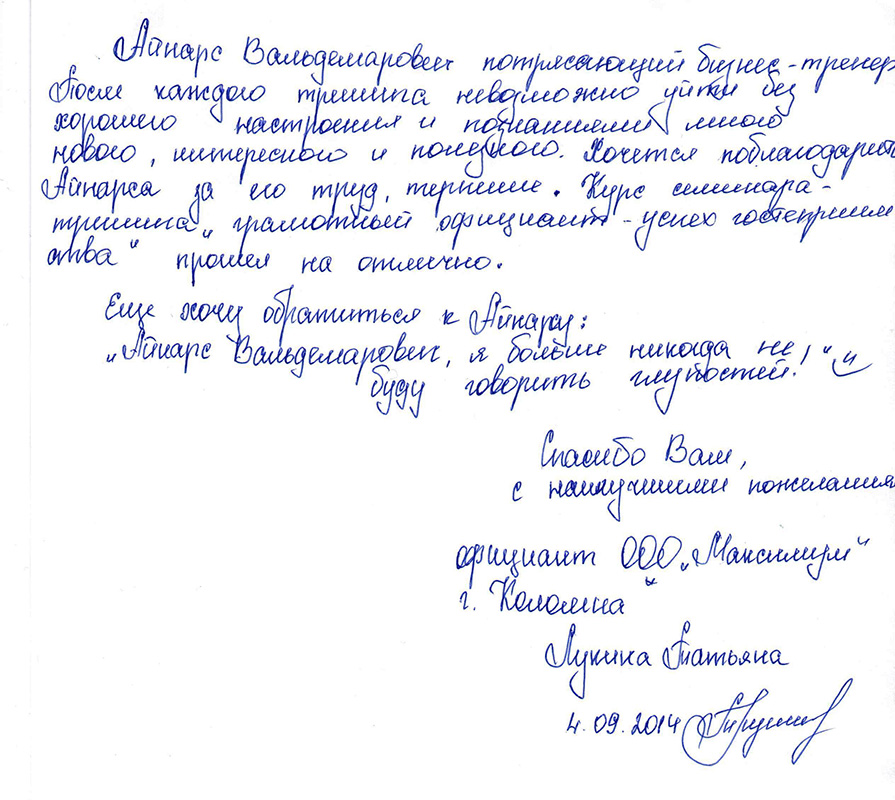 Айнарс Вальдемарович потрясающий бизнес-тренер
После каждого тренинга невозможно уйти без
хорошего настроения и познаниями много
нового, интересного и полезного. Хочется поблагодарить
Айнарса за его труд, терпение. Курс семинара-
тренинга „грамотный официант - успех гостеприим
ства" прошел на отлично.
Еще хочу обратиться к Айнарсу:
„Айнарс Вальдемарович, я больше никогда не
буду говорить глупостей!"
Спасибо Вам,
с наилучшими пожелания
официант ООО „Максимум"
г. Коломна
Лунина Татьяна
4.09.2014